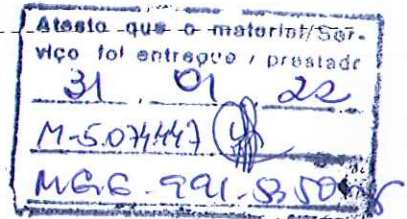 Atesto que o material/Ser-
viço foi entregue / prestado
31 01 22
M-5.074.447
MG-6-991-